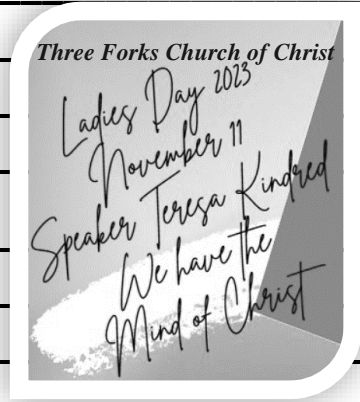 Three Forks Church of Christ
Ladies Day 2023
November 11
Speaker Teresa Kindred
We have the
Mind of Christ